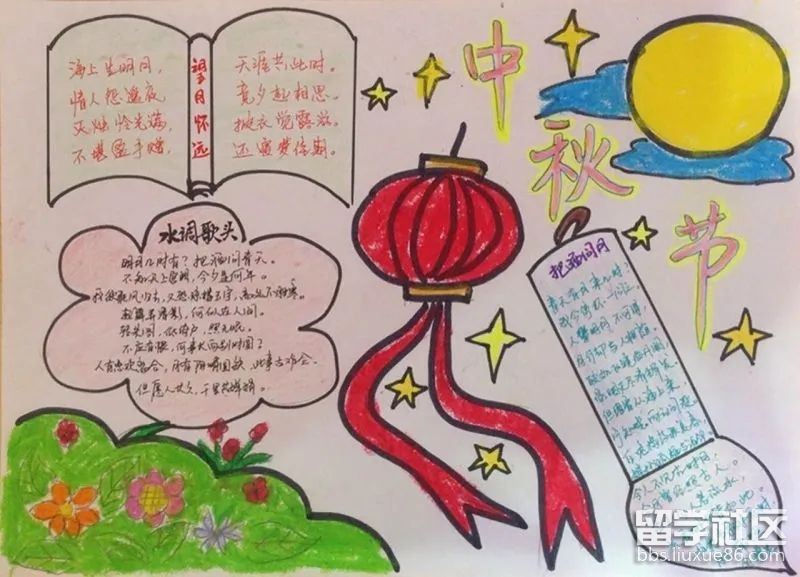 中
秋
节
望月怀远
海上生明月，
情人怨遥夜，
灭烛怜光满，
不堪盈手赠，
天涯共此时。
竟夕起相思。
披衣觉露滋。
还寝梦佳期。
水调歌头
明月几时有？把酒问青天。
不知天上宫阙，今夕是何年。
我欲乘风归去，又恐琼楼玉宇，高处不胜寒。
起舞弄清影，何似在人间。
转朱阁，低绮户，照无眠。
不应有恨，何事长向别时圆？
人有悲欢离合，月有阴晴圆缺，此事古难全。
但愿人长久，千里共婵娟。
把酒问月
青天有月来几时？
我今停杯一问之。
人攀明月不可得，
月行却与人相随。
今人不见古时月，
今月曾经照古人。
留学社区
bbs.liuxue86.com